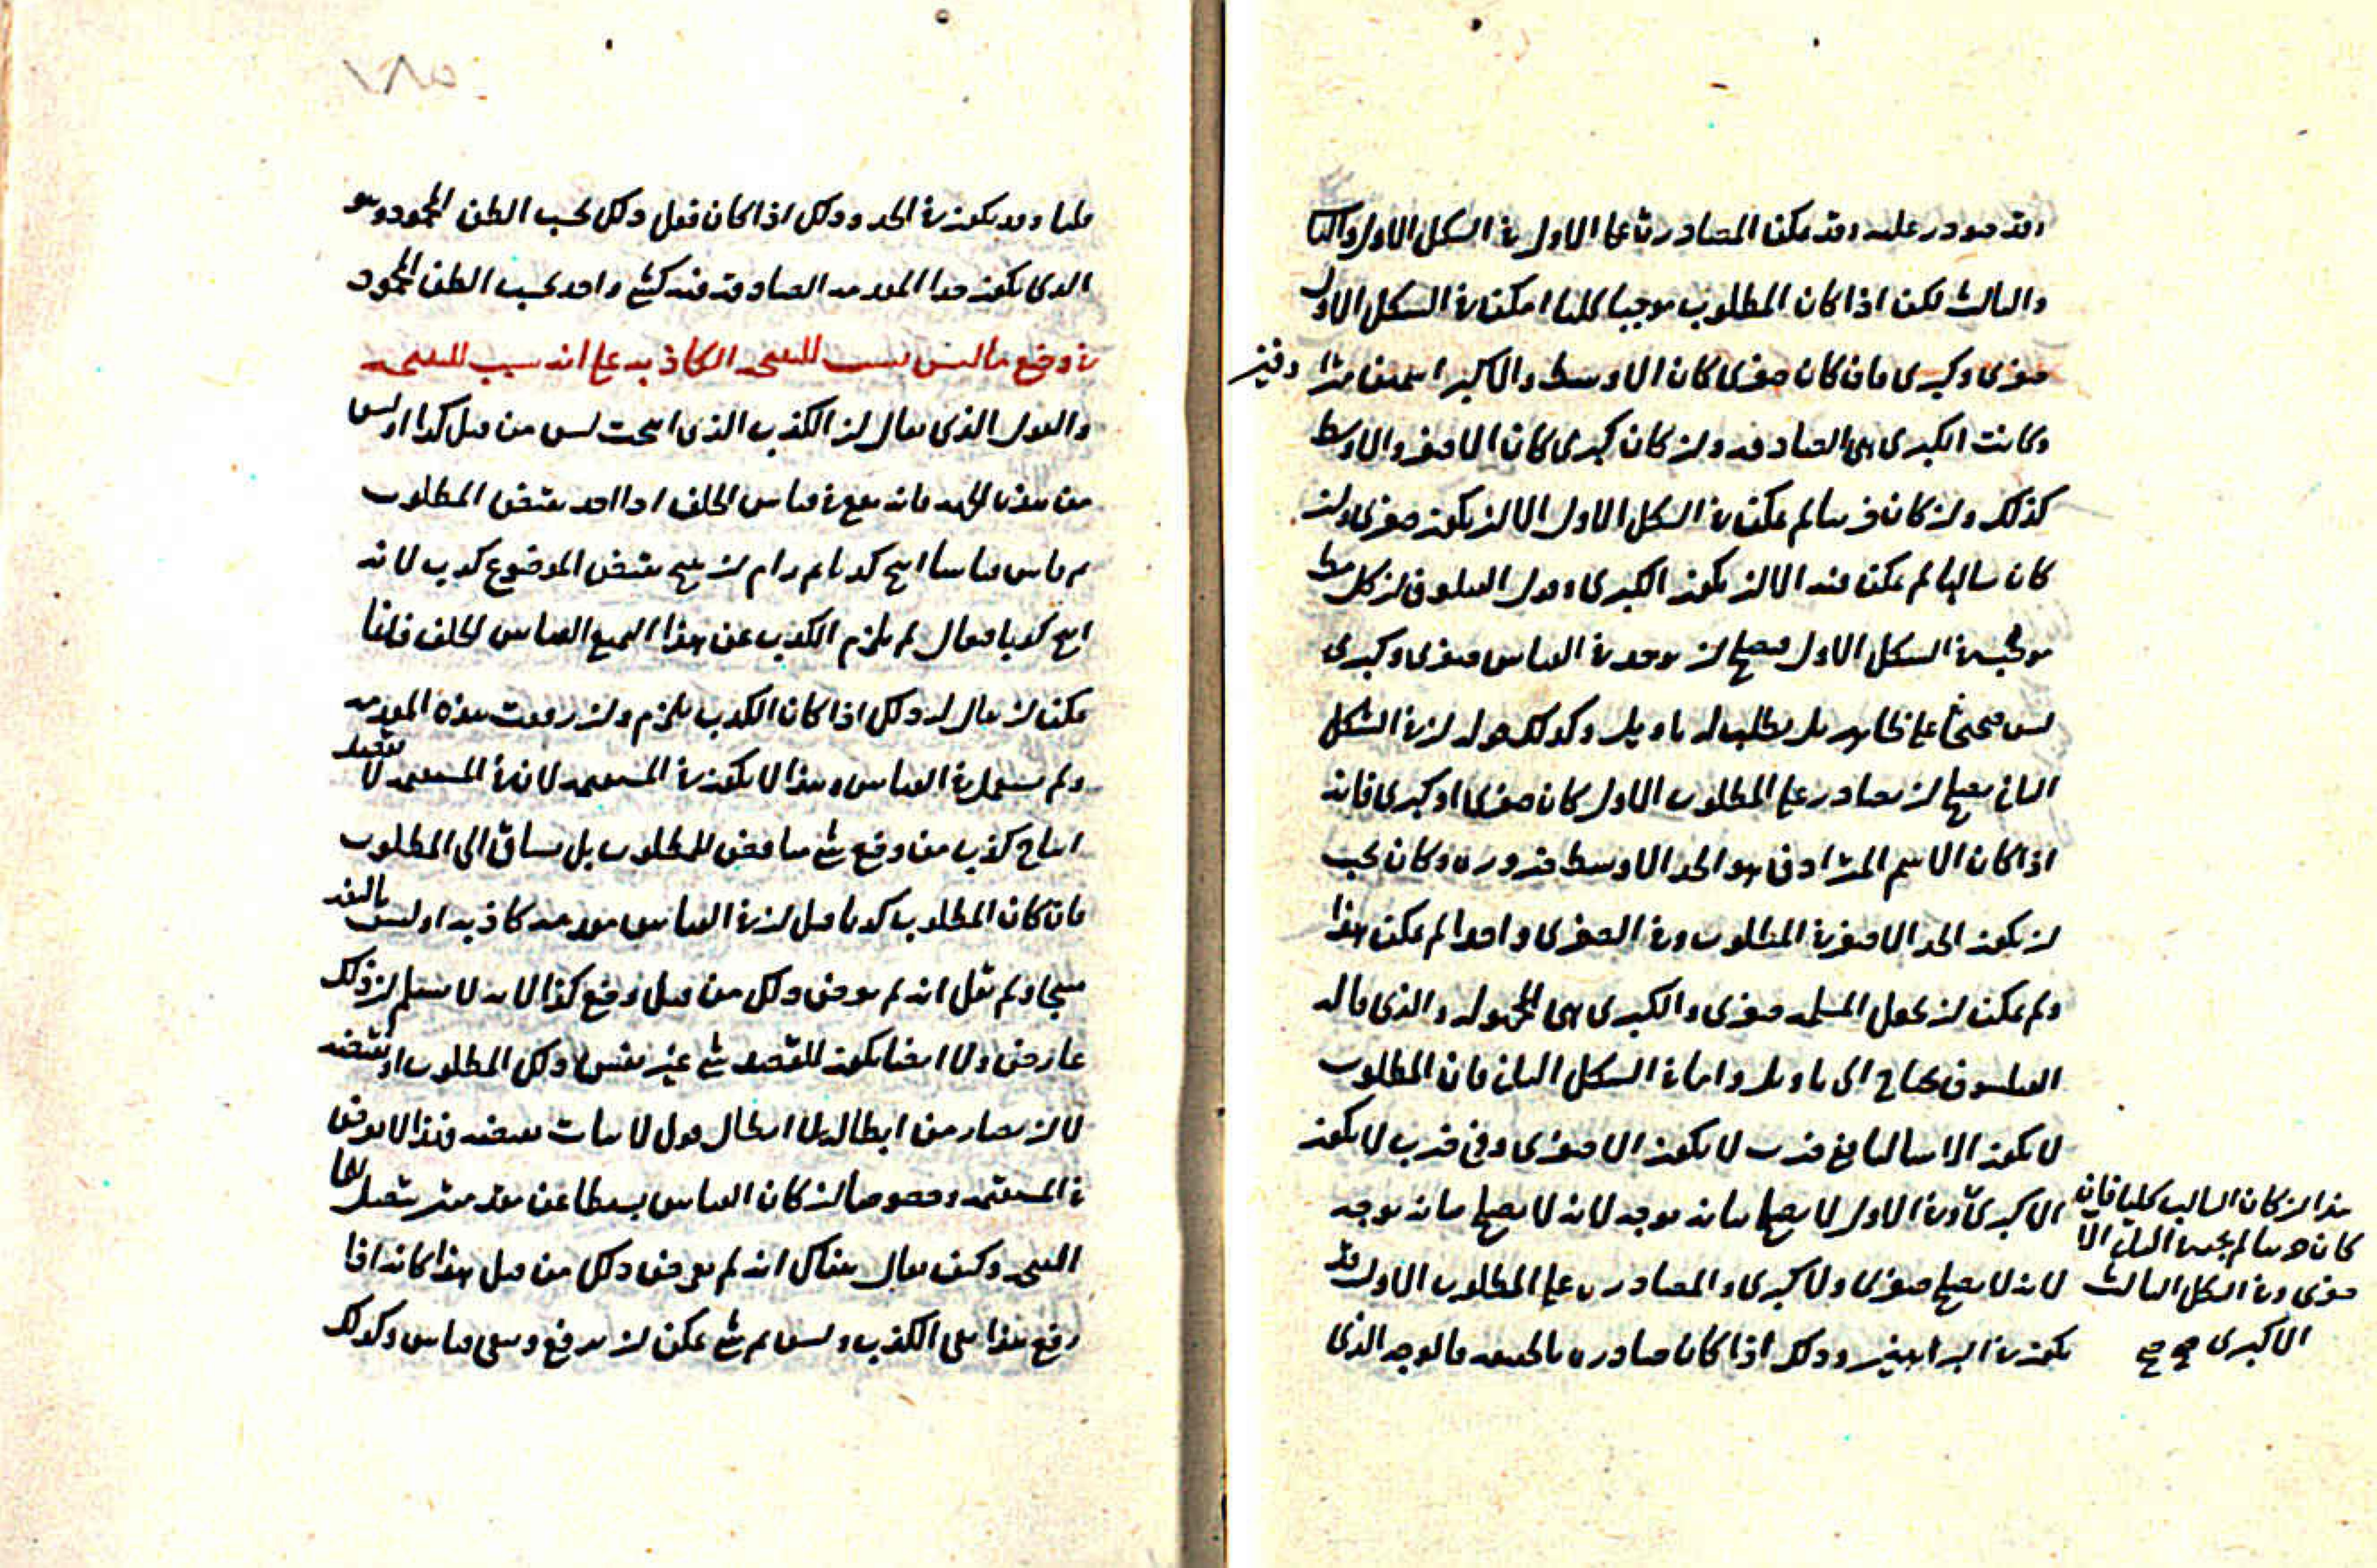 وقد صودر عليه وقد يمكن المصادرة على الاول في الشكل الاول والثاني
والثالث لكن اذا كان المطلوب موجبا كليا امكن في الشكل الاول
صغرى وكبرى فان كان صغرى كان الاوسط والاكبر اسمين مترادفين
وكانت الكبرى هى الصادقة وان كان كبرى كان الاصغر والاوسط
كذلك وان كان جزئيا لم يمكن في الشكل الاول الا ان يكون صغرى وان
كان سالبا لم يمكن فيه الا ان يكون الكبرى وقول الفيلسوف ان كل
موجبة في الشكل الاول فيصلح ان يوجد في القياس صغرى وكبرى
ليس على ظاهره بل يطلب له تاويل وكذلك قوله ان في الشكل
الثاني يصلح ان يصادر على المطلوب الاول كان صغرى او كبرى فانه
اذا كان الاسم المترادف هو الحد الاوسط ضرورة وكان يجب
ان يكون الحد الاصغر في المطلوب وفي الصغرى واحدا لم يمكن هذا
ولم يمكن ان يجعل المسلمة صغرى والكبرى هى المجهولة والذى قاله
الفيلسوف يحتاج الى تاويل واما في الشكل الثاني فان المطلوب
لا يكون الا سالبا ففي ضرب لا يكون الا صغرى وفي ضرب لا يكون
الا كبرى وفي الاول لا يصلح بيانه بوجه لانه لا يصلح بيانه بوجه
لانه لا يصلح صغرى ولا كبرى والمصادرة على المطلوب الاول قد
يكون في البراهين وذلك اذا كان مصادرة بالحقيقة فالوجه الذى
هذا ان كان السالب كليا فان
كان جزئيا لم يجب في الثاني الا
صغرى وفي الشكل الثالث
الا كبرى صح صح
قلنا وقد يكون في الجدل وذلك اذا كان فعل ذلك بحسب الظن المحمود وهو
الذى يكون حدا المقدمة الصادقة فيه كشئ واحد بحسب الظن المحمود
في وضع ما ليس بسبب للنتيجة الكاذبة على انه سبب للنتيجة
والقول الذى يقال ان الكذب الذى انتجت ليس من قبل كذا او ليس
من هذه الجهة فانه يقع في قياس الخلف اذا اخذ نقيض المطلوب
ثم قاس قياسا انتج كذبا ثم رام ان ينتج نقيض الموضوع كذب لانه
انتج كذبا فيقال لم يلزم الكذب عن هذا الجميع القياس الخلف فانما
يمكن ان يقال له ذلك اذا كان الكذب يلزم وان رفعت هذه المقدمة
ولم تستعمل في القياس وهذا لا يكون في المستقيم لان في المستقيم لا يقصد
انتاج كذب من وضع شئ مناقض للمطلوب بل يساق الى المطلوب
فان كان المطلوب كذبا قيل ان في القياس مقدمة كاذبة او ليس بالفعل
منتجا ولم يقل انه لم يعرض ذلك من قبل وضع كذا لانه لا يستلم ان ذلك
عارض ولا ايضا يكون للقصد شئ غير نفس ذلك المطلوب او نقيضه
لا ان يصار من ابطاله الى ابطال قول لاثبات نقيضه وهذا لا يعرض
في المستقيم وخصوصا ان كان القياس بسيطا عن مقدمتين يتصل بها
النتيجة وكيف يقال هناك انه لم يعرض ذلك من قبل هذا كانه اذا
رفع هذا بقى الكذب وليس ثم شئ يمكن ان يرفع ويبقى قياس وكذلك